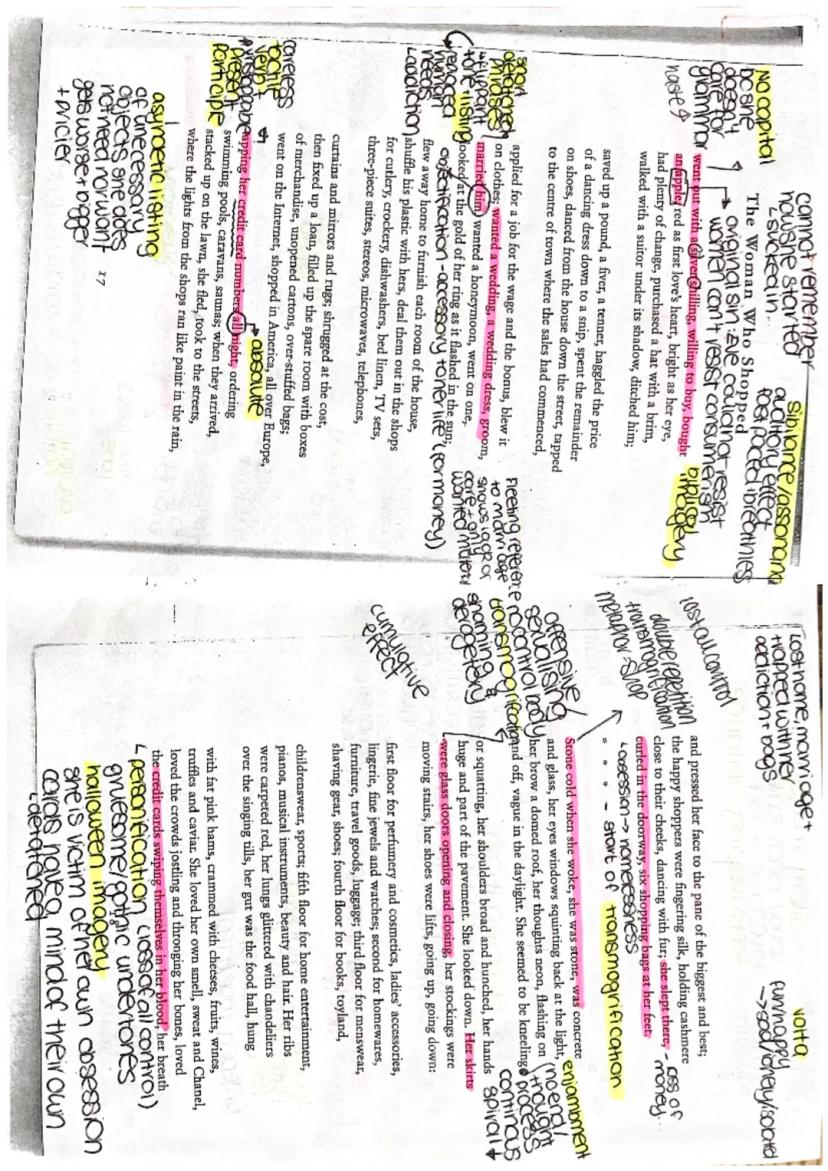 cannot remember
how she started
↳ sucked in..
sibilance/assonance
auditory effect
fast paced breathless
NO capital
bc she
doesn't
care for
grammar
haste
original sin: Eve could not resist
women can't resist consumerism
biblical
imagery
The Woman Who Shopped
went out with a silver shilling, willing to buy, bought
an apple, red as first love's heart, bright as her eye,
had plenty of change, purchased a hat with a brim,
walked with a suitor under its shadow, ditched him;
saved up a pound, a fiver, a tenner, haggled the price
of a dancing dress down to a snip, spent the remainder
on shoes, danced from the house down the street, tapped
to the centre of town where the sales had commenced,
applied for a job for the wage and the bonus, blew it
on clothes; wanted a wedding, a wedding dress, groom,
married him, wanted a honeymoon, went on one,
looked at the gold of her ring as it flashed in the sun;
short
detached
phrases
↳ flippant
tone
listing
human
needs
↳ addiction
objectification - accessory to her life (for money)
Fleeting reference
to marriage
shows lack of
care + only
wanted
flew away home to furnish each room of the house,
shuffle his plastic with hers, deal them out in the shops
for cutlery, crockery, dishwashers, bed linen, TV sets,
three-piece suites, stereos, microwaves, telephones,
curtains and mirrors and rugs; shrugged at the cost,
then fixed up a loan, filled up the spare room with boxes
of merchandise, unopened cartons, over-stuffed bags;
went on the Internet, shopped in America, all over Europe,
careless
tactile
verb +
present
participle
absolute
tapping her credit card numbers all night, ordering
swimming pools, caravans, saunas; when they arrived,
stacked up on the lawn, she fled, took to the streets,
where the lights from the shops ran like paint in the rain,
asyndetic listing
of unecessary
objects she does
not need nor want
gets worse + bigger
+ pricier
27
Lost home, marriage +
trapped with her
addiction + bags
volta
fun/happy
→ sad/lonely/isolated
and pressed her face to the pane of the biggest and best;
the happy shoppers were fingering silk, holding cashmere
close to their cheeks, dancing with fur; she slept there,
curled in the doorway, six shopping bags at her feet.
loss of
money..
lost all control
double repetition
transmogrification
metaphor - shop
↳ obsession → homelessness
* * * - start of transmogrification
Stone cold when she woke, she was stone, was concrete
and glass, her eyes windows squinting back at the light,
her brow a domed roof, her thoughts neon, flashing on
and off, vague in the daylight. She seemed to be kneeling
enjambment
no end/
thought
process
continous
spiral ↓
offensive/
sexualising
no control body
transmogrification
shaming +
derogetery
or squatting, her shoulders broad and hunched, her hands
huge and part of the pavement. She looked down. Her skirts
were glass doors opening and closing, her stockings were
moving stairs, her shoes were lifts, going up, going down:
cumulative
effect
first floor for perfumery and cosmetics, ladies' accessories,
lingerie, fine jewels and watches; second for homewares,
furniture, travel goods, luggage; third floor for menswear,
shaving gear, shoes; fourth floor for books, toyland,
childrenswear, sports; fifth floor for home entertainment,
pianos, musical instruments, beauty and hair. Her ribs
were carpeted red, her lungs glittered with chandeliers
over the singing tills, her gut was the food hall, hung
with fat pink hams, crammed with cheeses, fruits, wines,
truffles and caviar. She loved her own smell, sweat and Chanel,
loved the crowds jostling and thronging her bones, loved
the credit cards swiping themselves in her blood, her breath
↳ personification (loss of all control)
gruesome/gothic undertones
halloween imagery
she is victim of her own obsession
cards have a mind of their own
↳ detatched